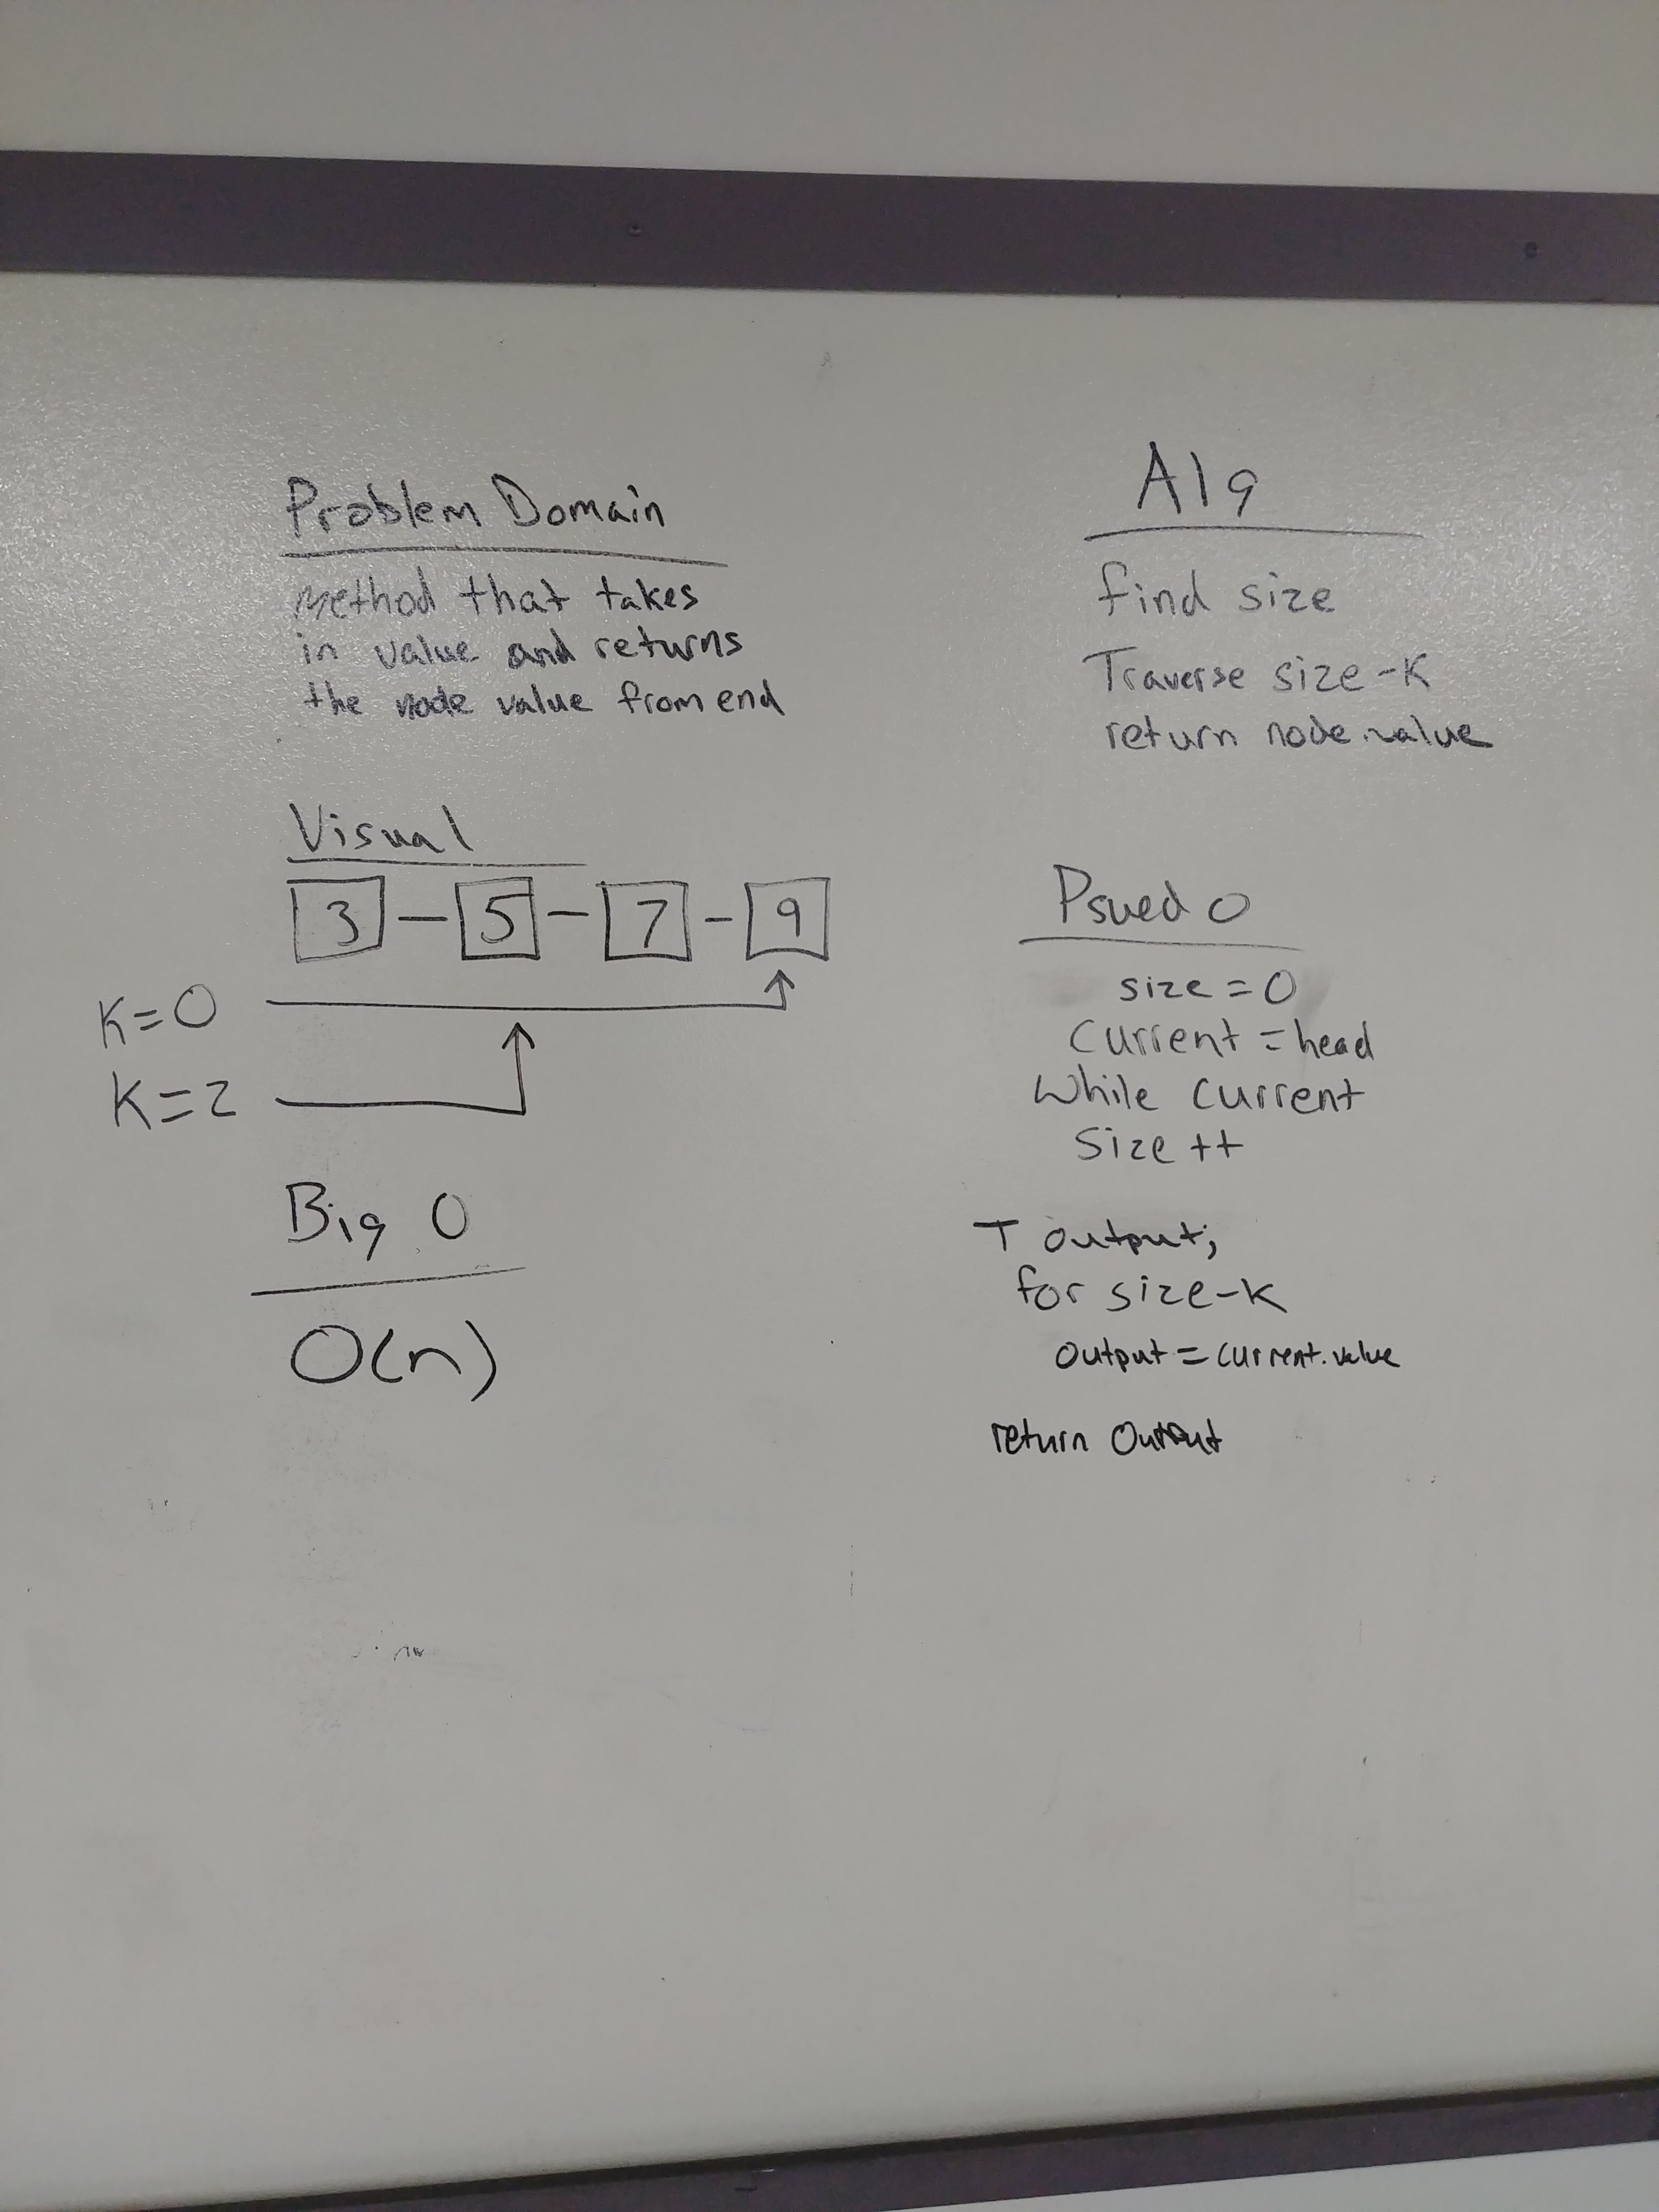 Problem Domain
Method that takes
in value and returns
the node value from end
Visual
3 - 5 - 7 - 9
K=0
K=2
Big O
O(n)
Alg
find size
Traverse size-K
return node.value
Psuedo
size = 0
Current = head
While current
Size ++
T output;
for size-K
output = current.value
return output